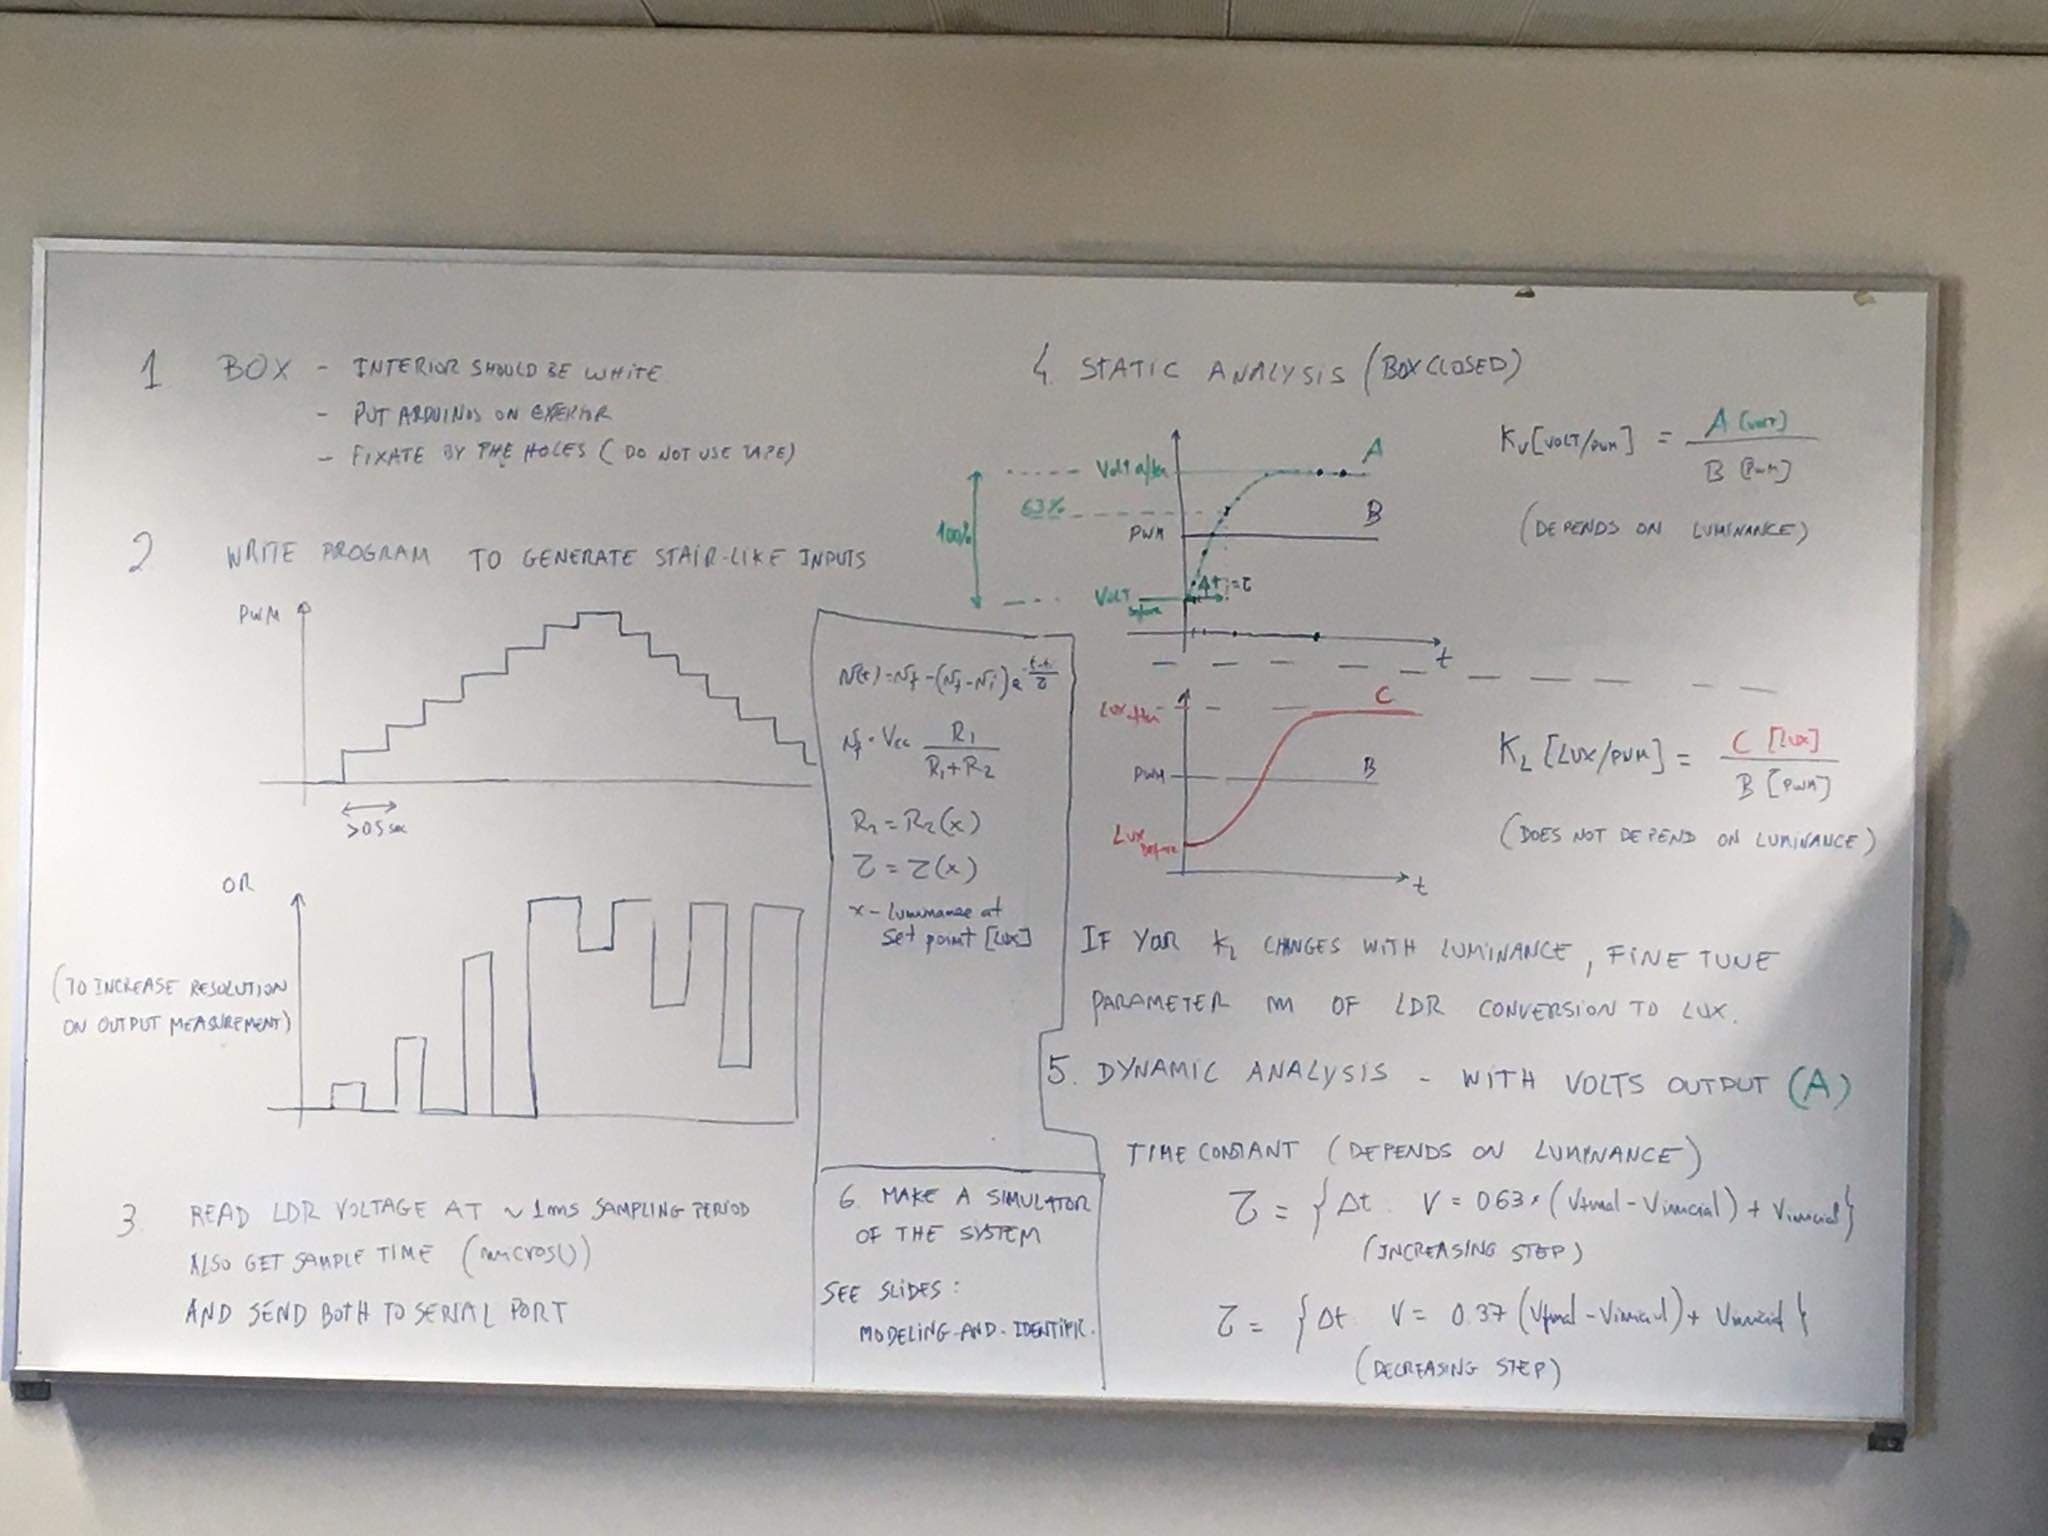 1 BOX - INTERIOR SHOULD BE WHITE
- PUT ARDUINOS ON EXTERIOR
- FIXATE BY THE HOLES (DO NOT USE TAPE)
2 WRITE PROGRAM TO GENERATE STAIR-LIKE INPUTS
PWM
>0.5 sec
OR
(TO INCREASE RESOLUTION
ON OUTPUT MEASUREMENT)
3. READ LDR VOLTAGE AT ~1ms SAMPLING PERIOD
ALSO GET SAMPLE TIME (micros())
AND SEND BOTH TO SERIAL PORT
v(t) = v_f - (v_f - v_i) e^{-(t-t_i)/τ}
v_f = Vcc R1/(R1+R2)
R2 = R2(x)
τ = τ(x)
x - luminance at
set point [LUX]
6. MAKE A SIMULATOR
OF THE SYSTEM
SEE SLIDES:
MODELING-AND-IDENTIFIC.
4. STATIC ANALYSIS (BOX CLOSED)
Volt after
A
63%
100%
PWM
B
Δt = τ
VOLT before
t
K_V [VOLT/PWM] = A [VOLT] / B [PWM]
(DEPENDS ON LUMINANCE)
LUX after
C
PWM
B
LUX before
t
K_L [LUX/PWM] = C [LUX] / B [PWM]
(DOES NOT DEPEND ON LUMINANCE)
IF YOUR K_L CHANGES WITH LUMINANCE, FINE TUNE
PARAMETER m OF LDR CONVERSION TO LUX.
5. DYNAMIC ANALYSIS - WITH VOLTS OUTPUT (A)
TIME CONSTANT (DEPENDS ON LUMINANCE)
τ = {Δt: V = 0.63 * (Vfinal - Vinicial) + Vinicial}
(INCREASING STEP)
τ = {Δt: V = 0.37 (Vfinal - Vinicial) + Vinicial}
(DECREASING STEP)